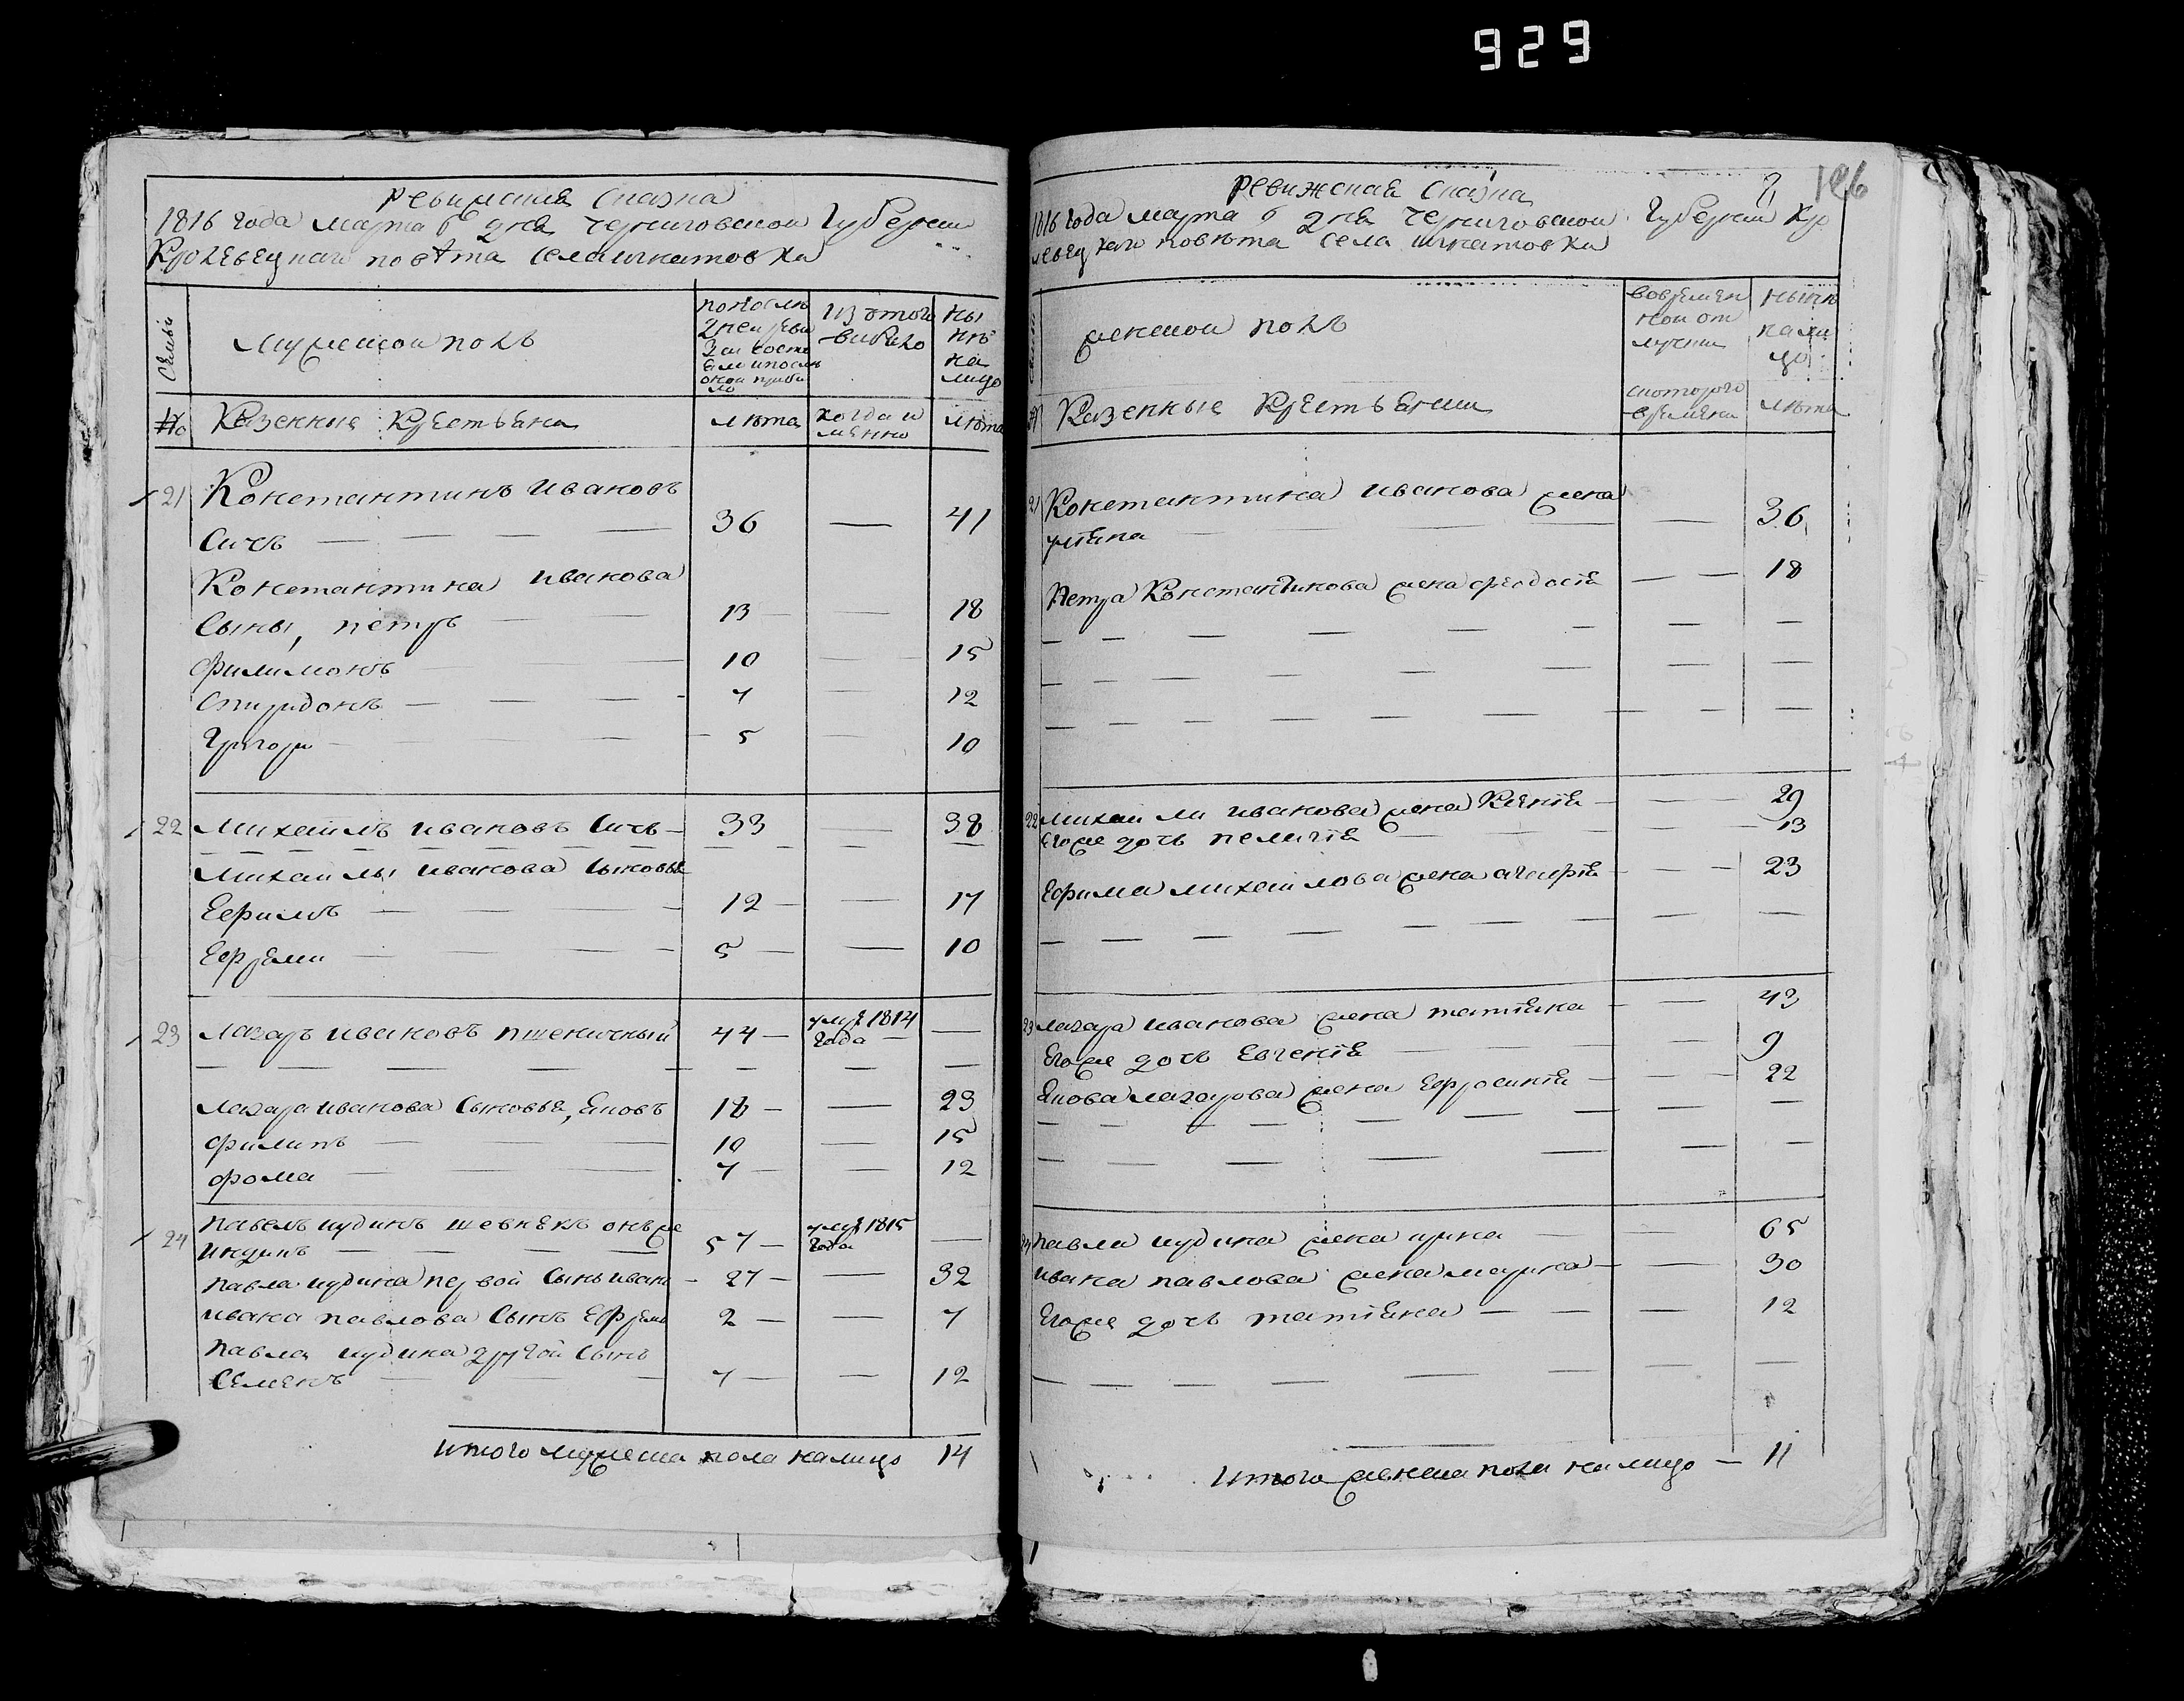 929
Ревижская Сказка
1816 года марта 6 дня Черниговской Губернии
Кролевецкаго повѣта села игнатовки
Семьи
мужеской полъ
по последн
ревизи состо
яло и после
оной прибы
ло
Из того
выбыло
ны
нѣ
на
лицо
№
Казенные Крестьяне
лѣта
когда и
менно
лѣта
21 Константинъ Ивановъ
Сичъ 36 — 41
Константина Иванова
Сыны, петръ 13 — 18
филимонъ 10 — 15
Спиридонъ 7 — 12
Григори 5 — 10
22 Михаилъ Ивановъ Сичъ 33 — 38
Михаилы Иванова Сыновья
Ефимъ 12 — 17
Ефремъ 5 — 10
23 Лазаръ Ивановъ пшеничный 44 — умре 1814 года —
Лазара Иванова Сыновья, Яковъ 18 — 23
филипъ 10 — 15
фома 7 — 12
24 Павелъ иудинъ онъ же
57 — умре 1815 года —
Павла иудина первой Сынъ иванъ 27 — 32
ивана павлова Сынъ Ефремъ 2 — 7
Павла иудина другой Сынъ
Семенъ 7 — 12
Итого мужеска пола налицо 14
196
Ревижская Сказка
1816 года марта 6 дня Черниговской Губернии Кро
левецкаго повѣта села игнатовки
женской полъ
вовремен
ной от
лучки
нынѣ
нали
цо
№
Казенные Крестьянки
скоторого
времени
лѣта
21 Константина иванова жена
устина — 36
Петра Константинова жена феодосия — 18
22 Михаили иванова жена Ксения — 29
Егоже дочь пелагия — 13
Ефима михаилова жена агафия — 23
23 Лазара иванова жена татияна — 43
Егоже дочь Евгения — 9
Якова лазарова жена Ефросиния — 22
24 Павла иудина жена ирина — 65
ивана павлова жена марина — 30
Егоже дочь татияна — 12
Итого женска пола налицо — 11